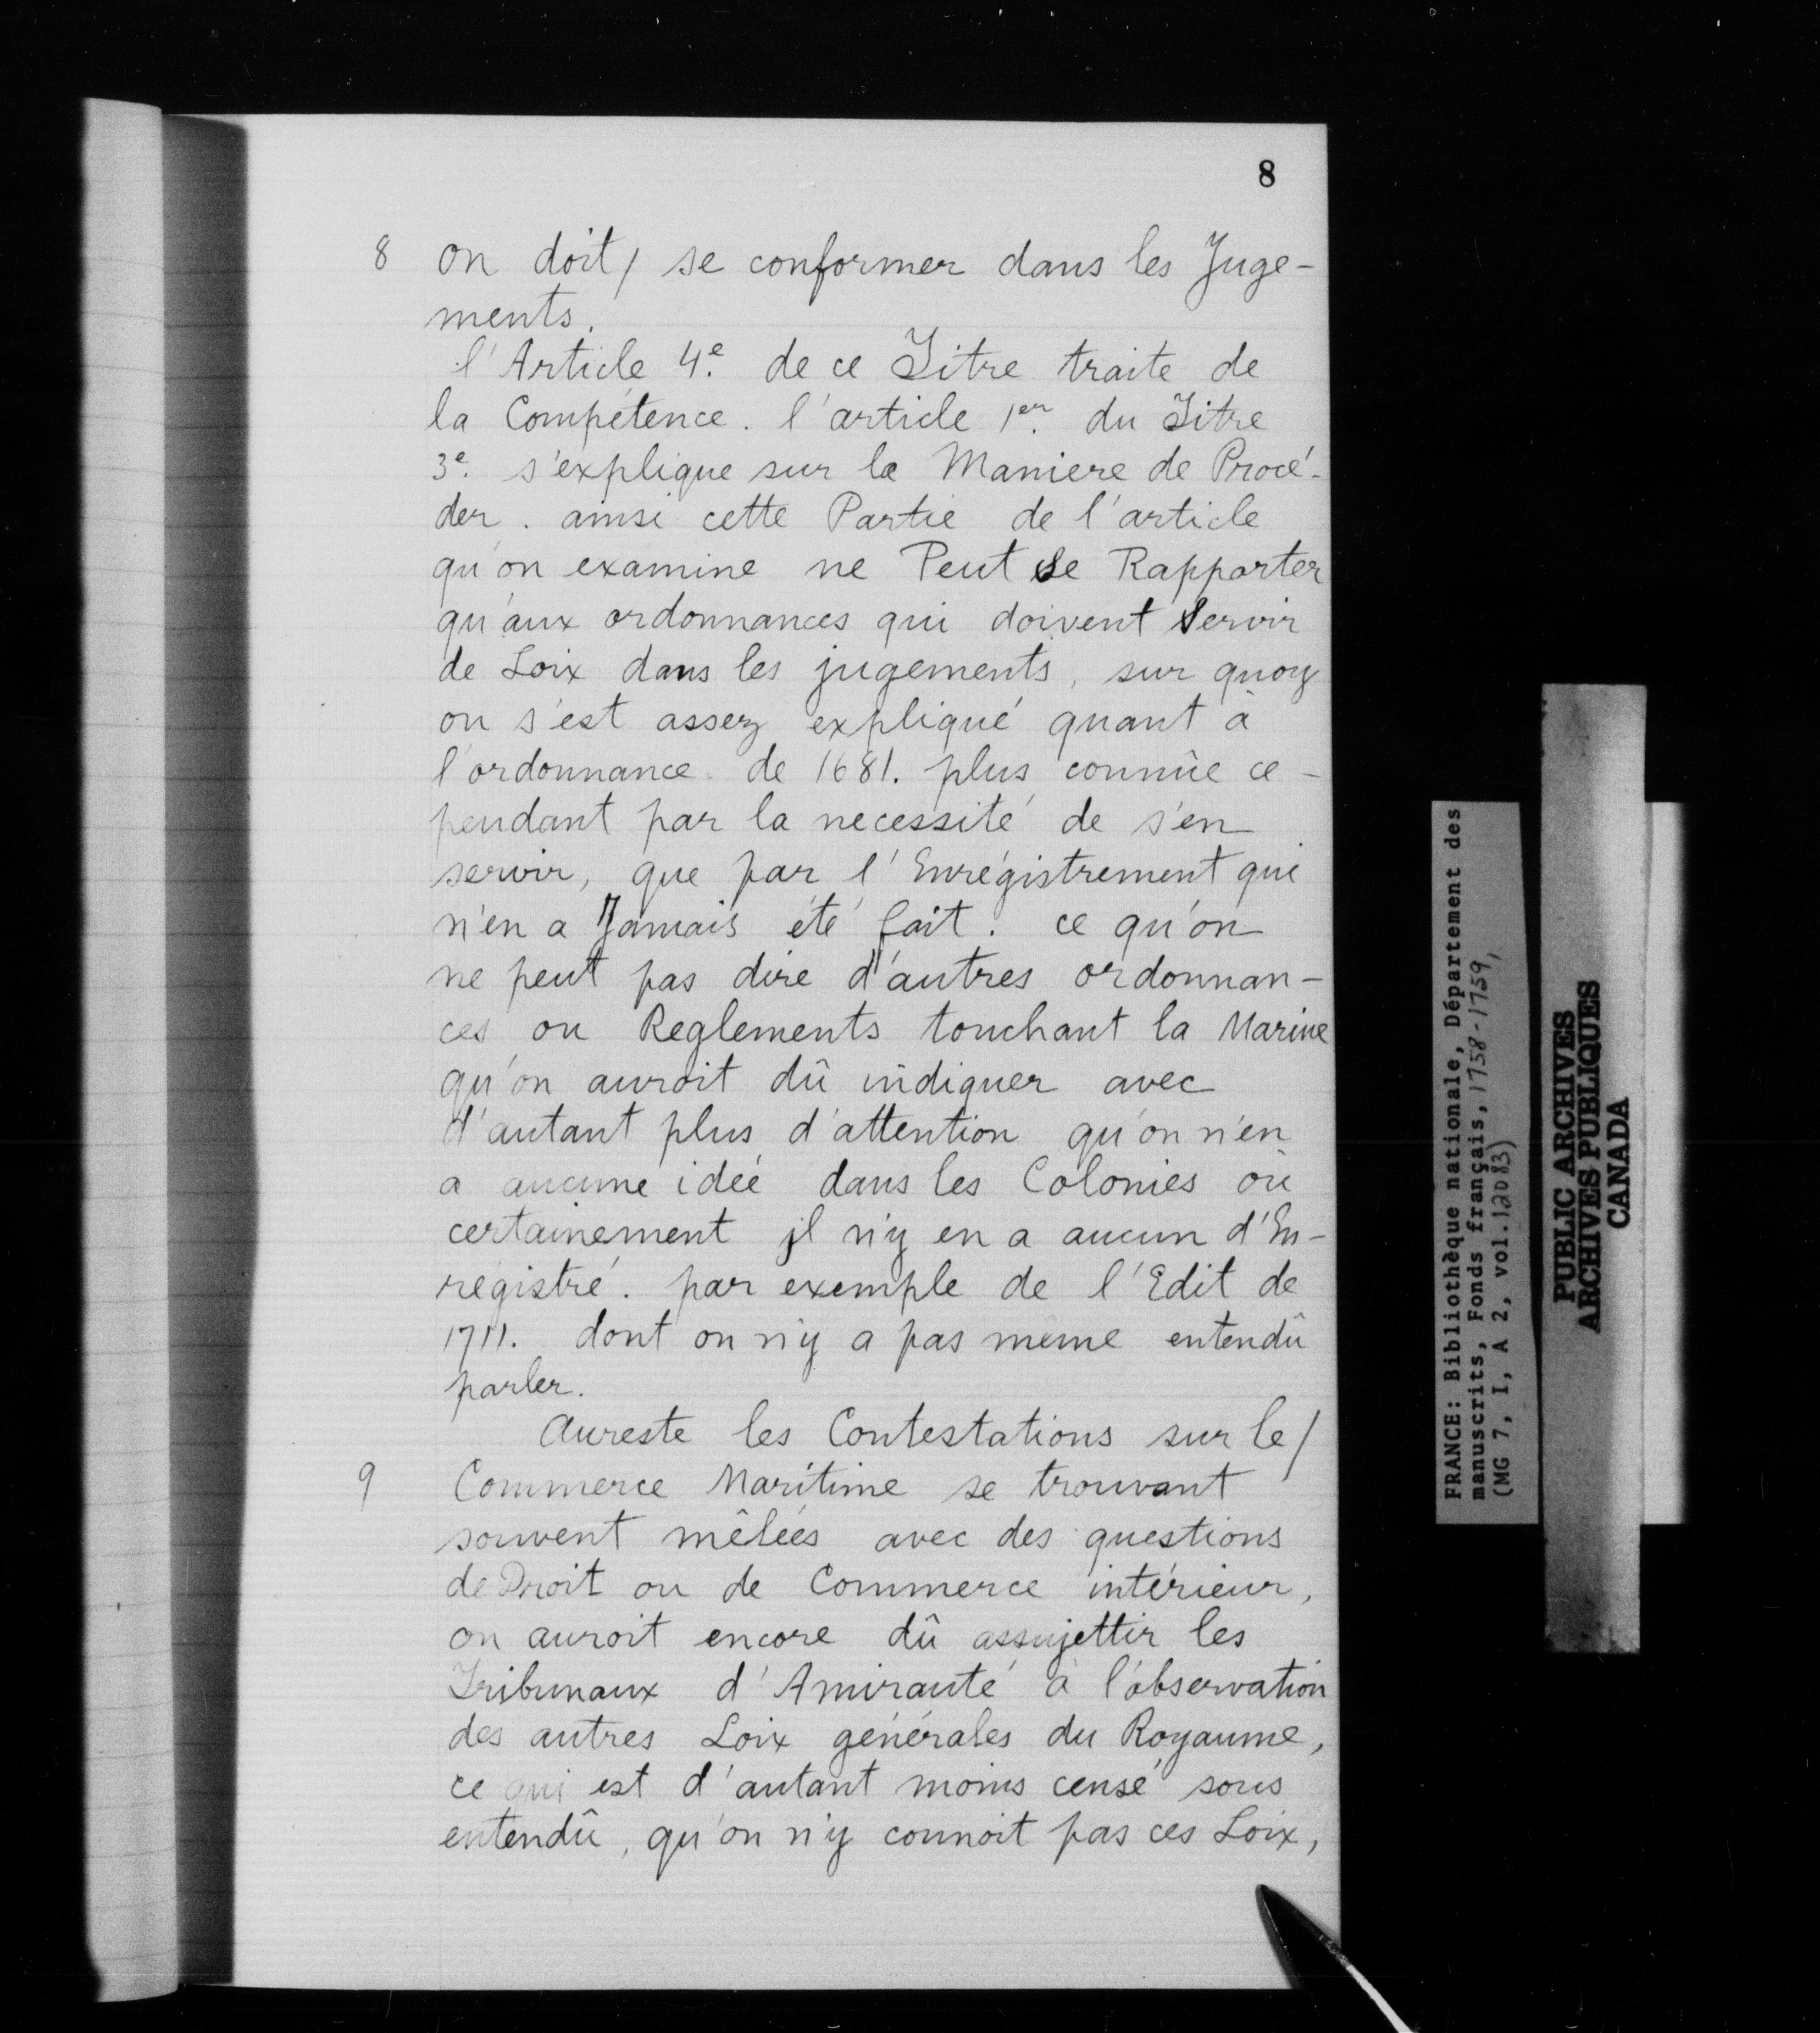 8
8 on doit / se conformer dans les Juge-
ments.
l'Article 4e. de ce Titre traite de
la Compétence. l'article 1er. du Titre
3e. s'explique sur la Maniere de Procé-
der. ainsi cette Partie de l'article
qu'on examine ne Peut se Rapporter
qu'aux ordonnances qui doivent servir
de Loix dans les jugements, sur quoy
on s'est assez expliqué quant à
l'ordonnance de 1681. plus connûe ce-
pendant par la necessité de s'en
servir, que par l'Enrégistrement qui
n'en a Jamais été fait. ce qu'on
ne peut pas dire d'autres ordonnan-
ces ou Reglements touchant la Marine
qu'on auroit dû indiquer avec
d'autant plus d'attention qu'on n'en
a aucune idée dans les Colonies où
certainement jl n'y en a aucun d'En-
régistré. par exemple de l'Edit de
1711. dont on n'y a pas meme entendû
parler.
Aureste les Contestations sur le /
9 Commerce Maritime se trouvant
souvent mêlées avec des questions
de Droit ou de Commerce intérieur,
on auroit encore dû assujettir les
Tribunaux d'Amirauté à l'observation
des autres Loix générales du Royaume,
ce qui est d'autant moins censé sous
entendû, qu'on n'y connoit pas ces Loix,
FRANCE: Bibliothèque nationale, Département des
manuscrits, Fonds français, 1758-1759,
(MG 7, I, A 2, vol. 12083)
PUBLIC ARCHIVES
ARCHIVES PUBLIQUES
CANADA